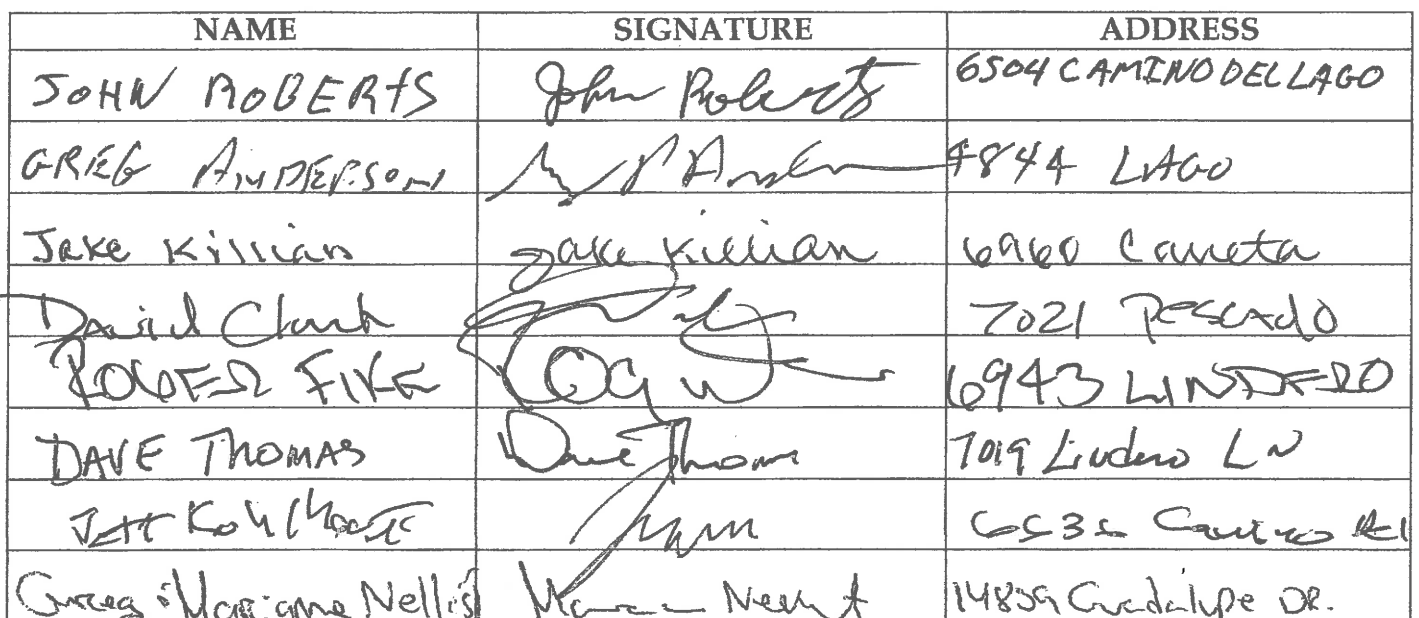 NAME SIGNATURE ADDRESS
JOHN ROBERTS John Roberts 6504 CAMINO DEL LAGO
GREG ANDERSON 4844 LAGO
Jake Killian Jake Killian 6960 Carreta
David Clark 7021 PESCADO
ROGER FIKE 6943 LINDERO
DAVE THOMAS Dave Thomas 7019 Lindero LN
Jeff Camino del
Greg & Marianne Nellis 14839 Guadalupe DR.